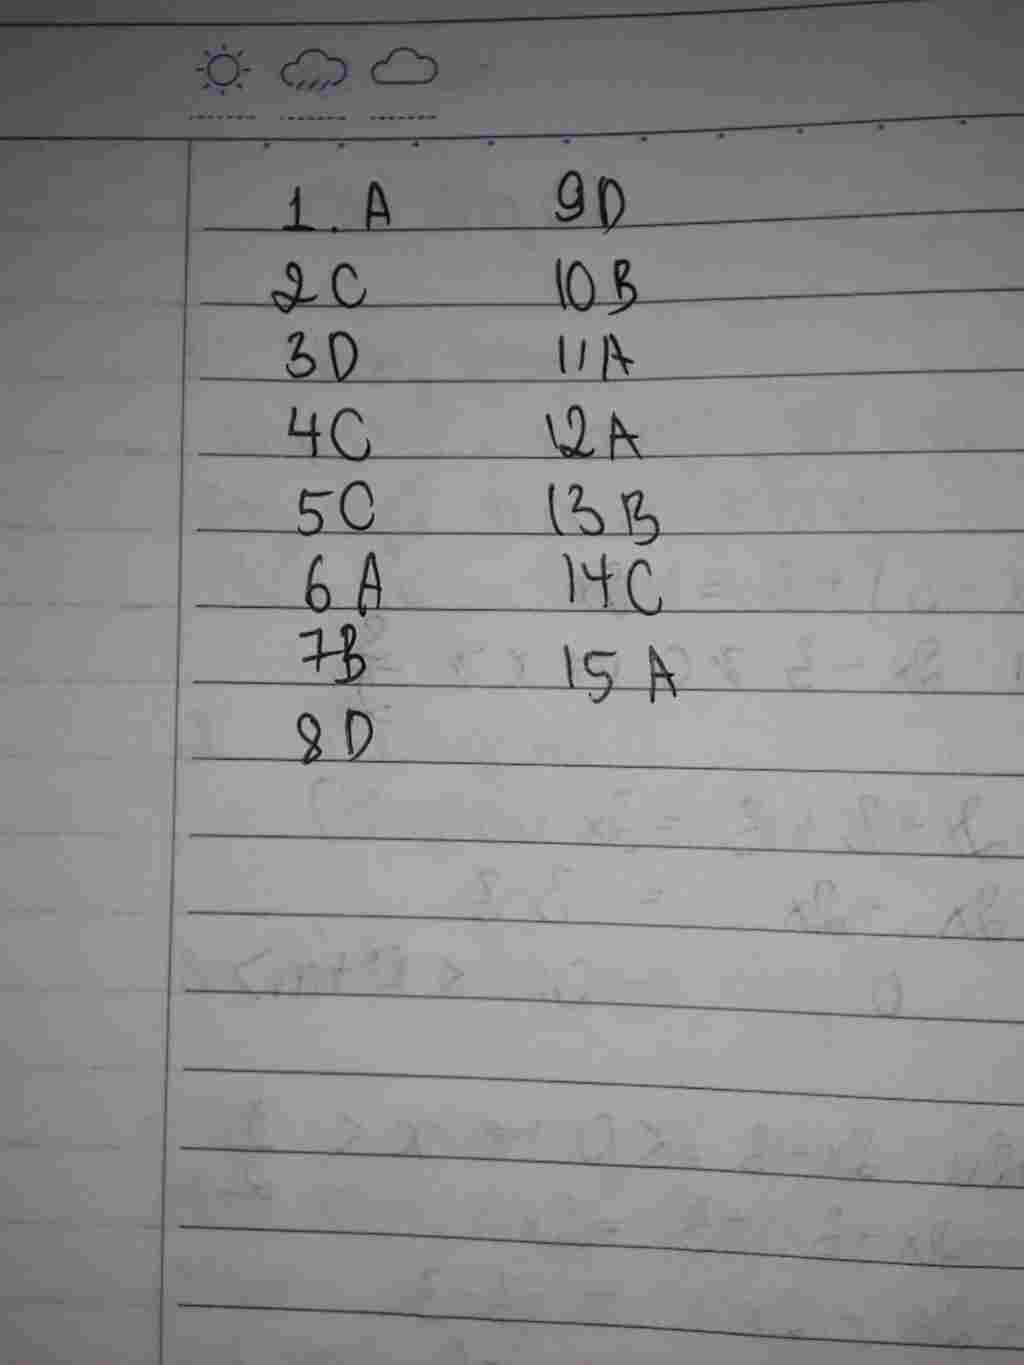 1. A
2 C
3 D
4 C
5 C
6 A
7 B
8 D
9 D
10 B
11 A
12 A
13 B
14 C
15 A